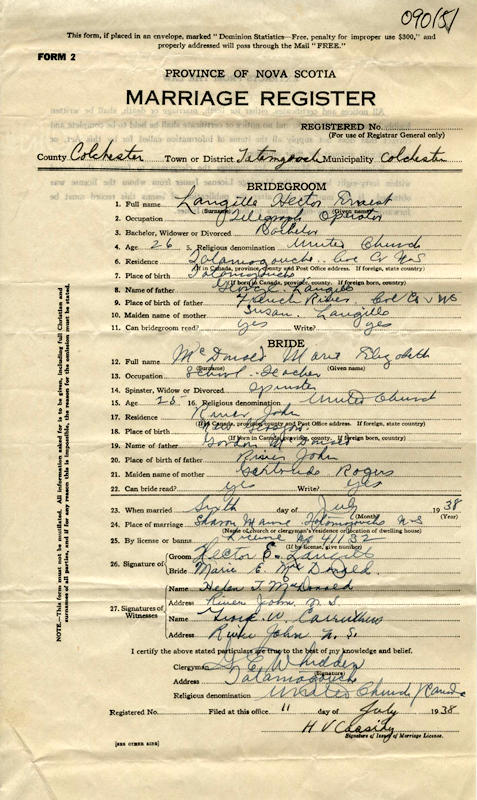 090151
This form, if placed in an envelope, marked "Dominion Statistics—Free, penalty for improper use $300," and
properly addressed will pass through the Mail "FREE."
FORM 2
PROVINCE OF NOVA SCOTIA
MARRIAGE REGISTER
REGISTERED No.
(For use of Registrar General only)
County Colchester Town or District Tatamagouche Municipality Colchester
BRIDEGROOM
1. Full name Langille Hector Ernest
(Surname) (Given name)
2. Occupation Telegraph Operator
3. Bachelor, Widower or Divorced Bachelor
4. Age 26 5. Religious denomination United Church
6. Residence Tatamagouche Col Co N S
(If in Canada, province, county and Post Office address. If foreign, state country)
7. Place of birth Tatamagouche
(If born in Canada, province, county. If foreign, country)
8. Name of father George Langille
9. Place of birth of father French River Col Co N S
10. Maiden name of mother Susan Langille
11. Can bridegroom read? yes Write? yes
BRIDE
12. Full name McDonald Marie Elizabeth
(Surname) (Given name)
13. Occupation School Teacher
14. Spinster, Widow or Divorced Spinster
15. Age 25 16. Religious denomination United Church
17. Residence River John
(If in Canada, province, county and Post Office address. If foreign, state country)
18. Place of birth New Glasgow
(If born in Canada, province, county. If foreign, country)
19. Name of father Gordon McDonald
20. Place of birth of father River John
21. Maiden name of mother Gertrude Rogers
22. Can bride read? yes Write? yes
23. When married Sixth day of July 1938
(Month) (Year)
24. Place of marriage Sharon Manse Tatamagouche N S
(Name of church or clergyman's residence or location of dwelling house)
25. By license or banns License No 41132
(If by license, give number)
26. Signature of Groom Hector E. Langille
Bride Marie E. McDonald
27. Signatures of Witnesses
Name Helen T. McDonald
Address River John N. S.
Name George W. Carruthers
Address River John N. S.
I certify the above stated particulars are true to the best of my knowledge and belief.
Clergyman E Whidden
(Signature)
Address Tatamagouche
Religious denomination United Church Canada
Registered No. Filed at this office 11 day of July 1938
H V Cassidy
Signature of Issuer of Marriage License.
[SEE OTHER SIDE]
NOTE.—This form must not be mutilated. All information asked for is to be given, including full Christian and
surnames of all parties, and if for any reason this is impossible, the reason for the omission must be stated.